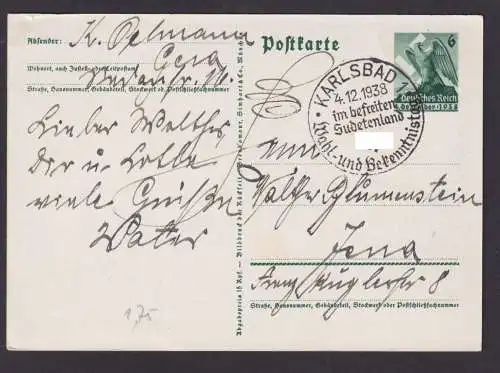 Absender: K. Oelmann
Gera
Wohnort, auch Zustell- oder Leitpostamt
Straße, Hausnummer, Gebäudeteil, Stockwerk od. Postschließfachnummer
Lieber Walther
Dir u. Lotte
viele Grüße
Vater
1,75
Postkarte
6
Deutsches Reich
KARLSBAD 1
4.12.1938
im befreiten
Sudetenland
Wahl- und Bekenntnistag
Walther Blumenstein
Jena
Straße, Hausnummer, Gebäudeteil, Stockwerk oder Postschließfachnummer
Abgabepreis 15 Rpf.